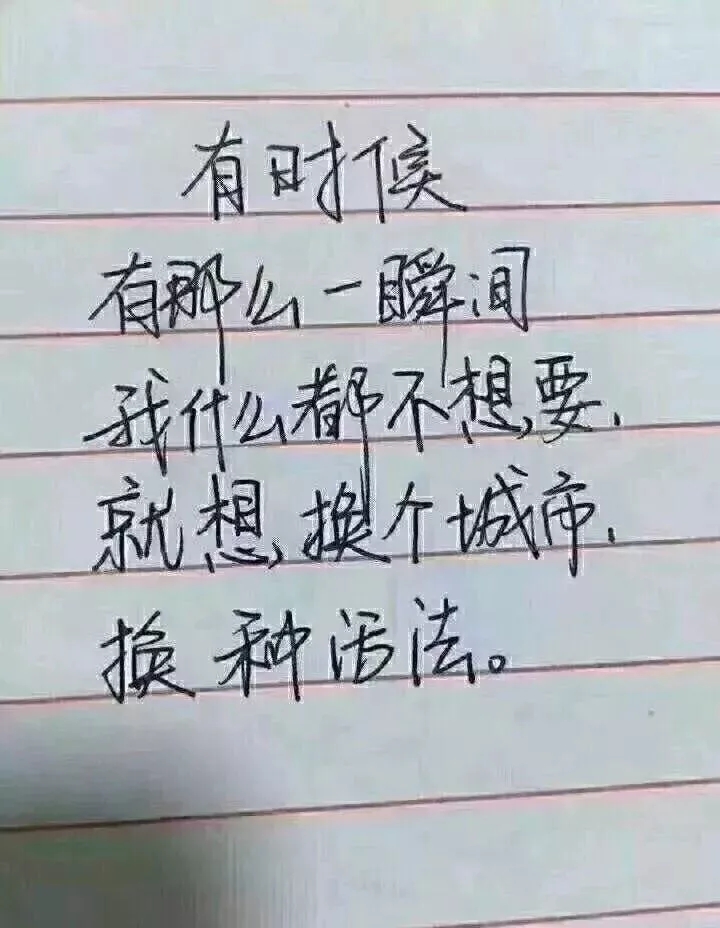 有时候
有那么一瞬间
我什么都不想要.
就想,换个城市.
换种活法。